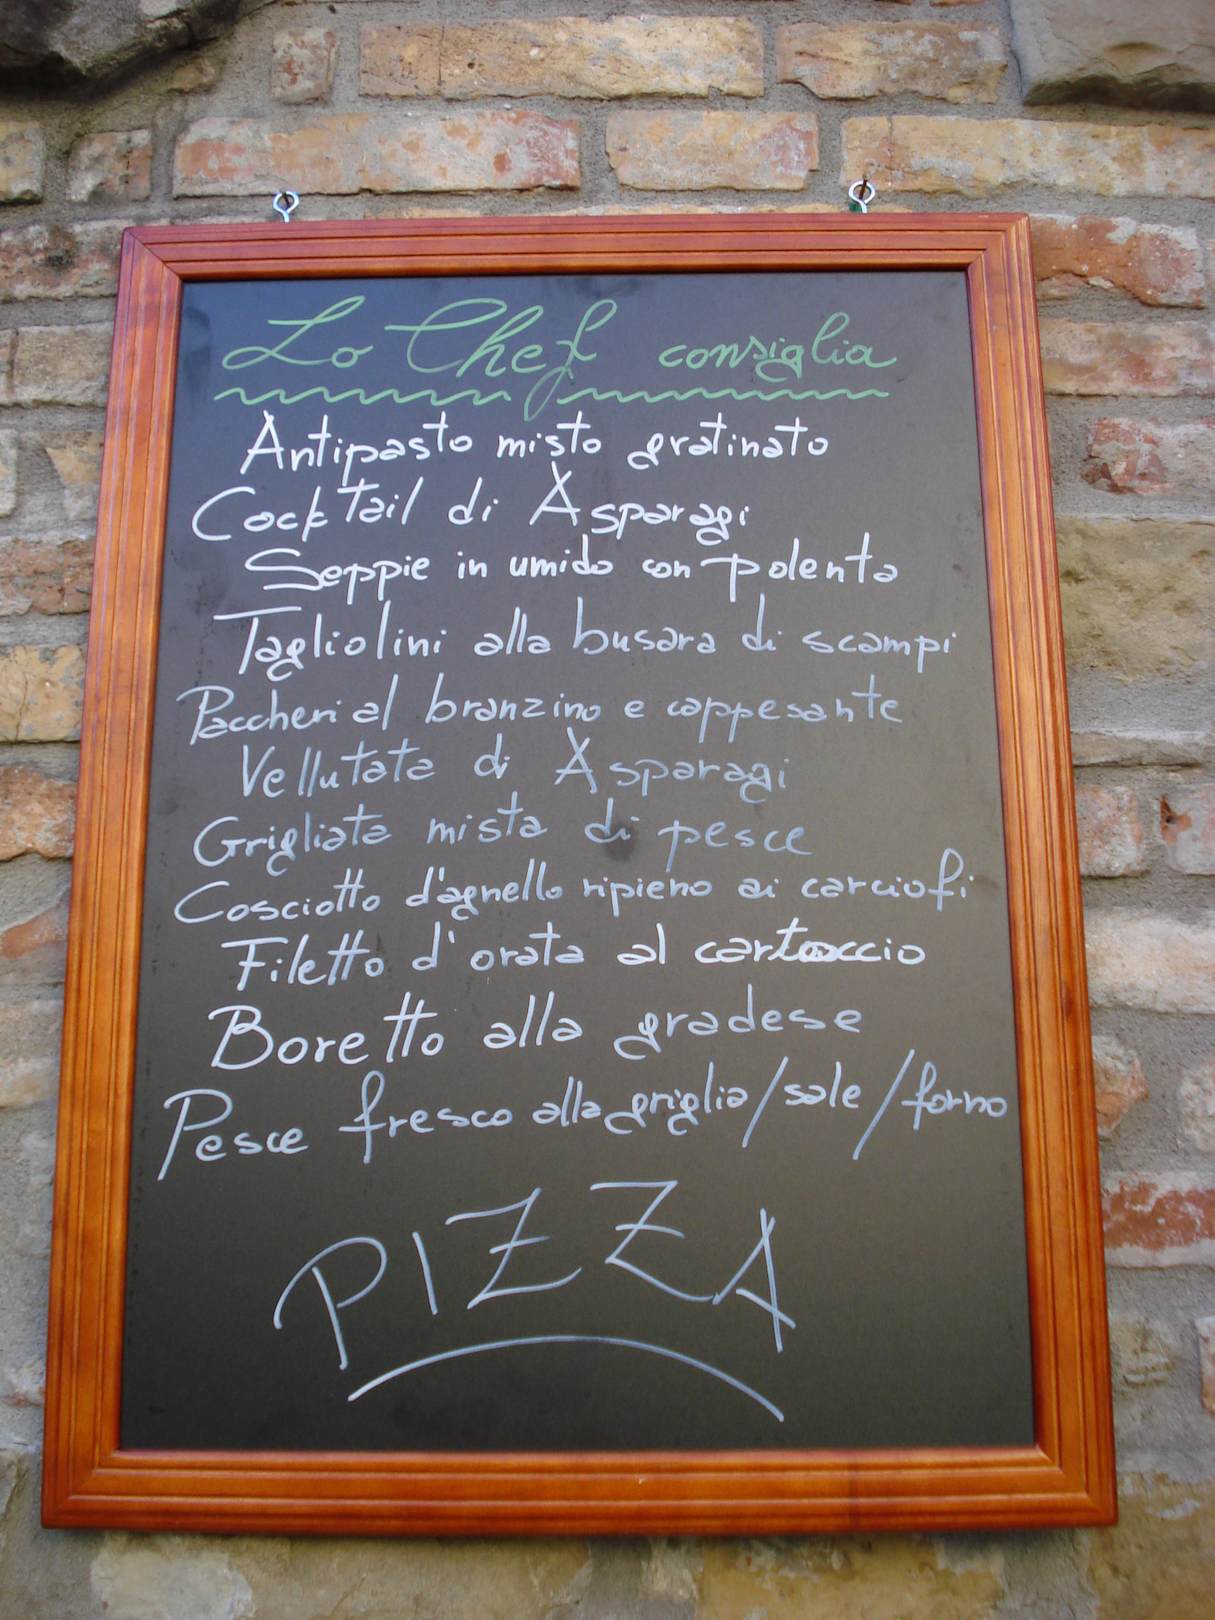 Lo Chef consiglia
Antipasto misto gratinato
Cocktail di Asparagi
Seppie in umido con polenta
Tagliolini alla busara di scampi
Paccheri al branzino e cappesante
Vellutata di Asparagi
Grigliata mista di pesce
Cosciotto d'agnello ripieno ai carciofi
Filetto d'orata al cartoccio
Boretto alla gradese
Pesce fresco alla griglia/sale/forno
PIZZA